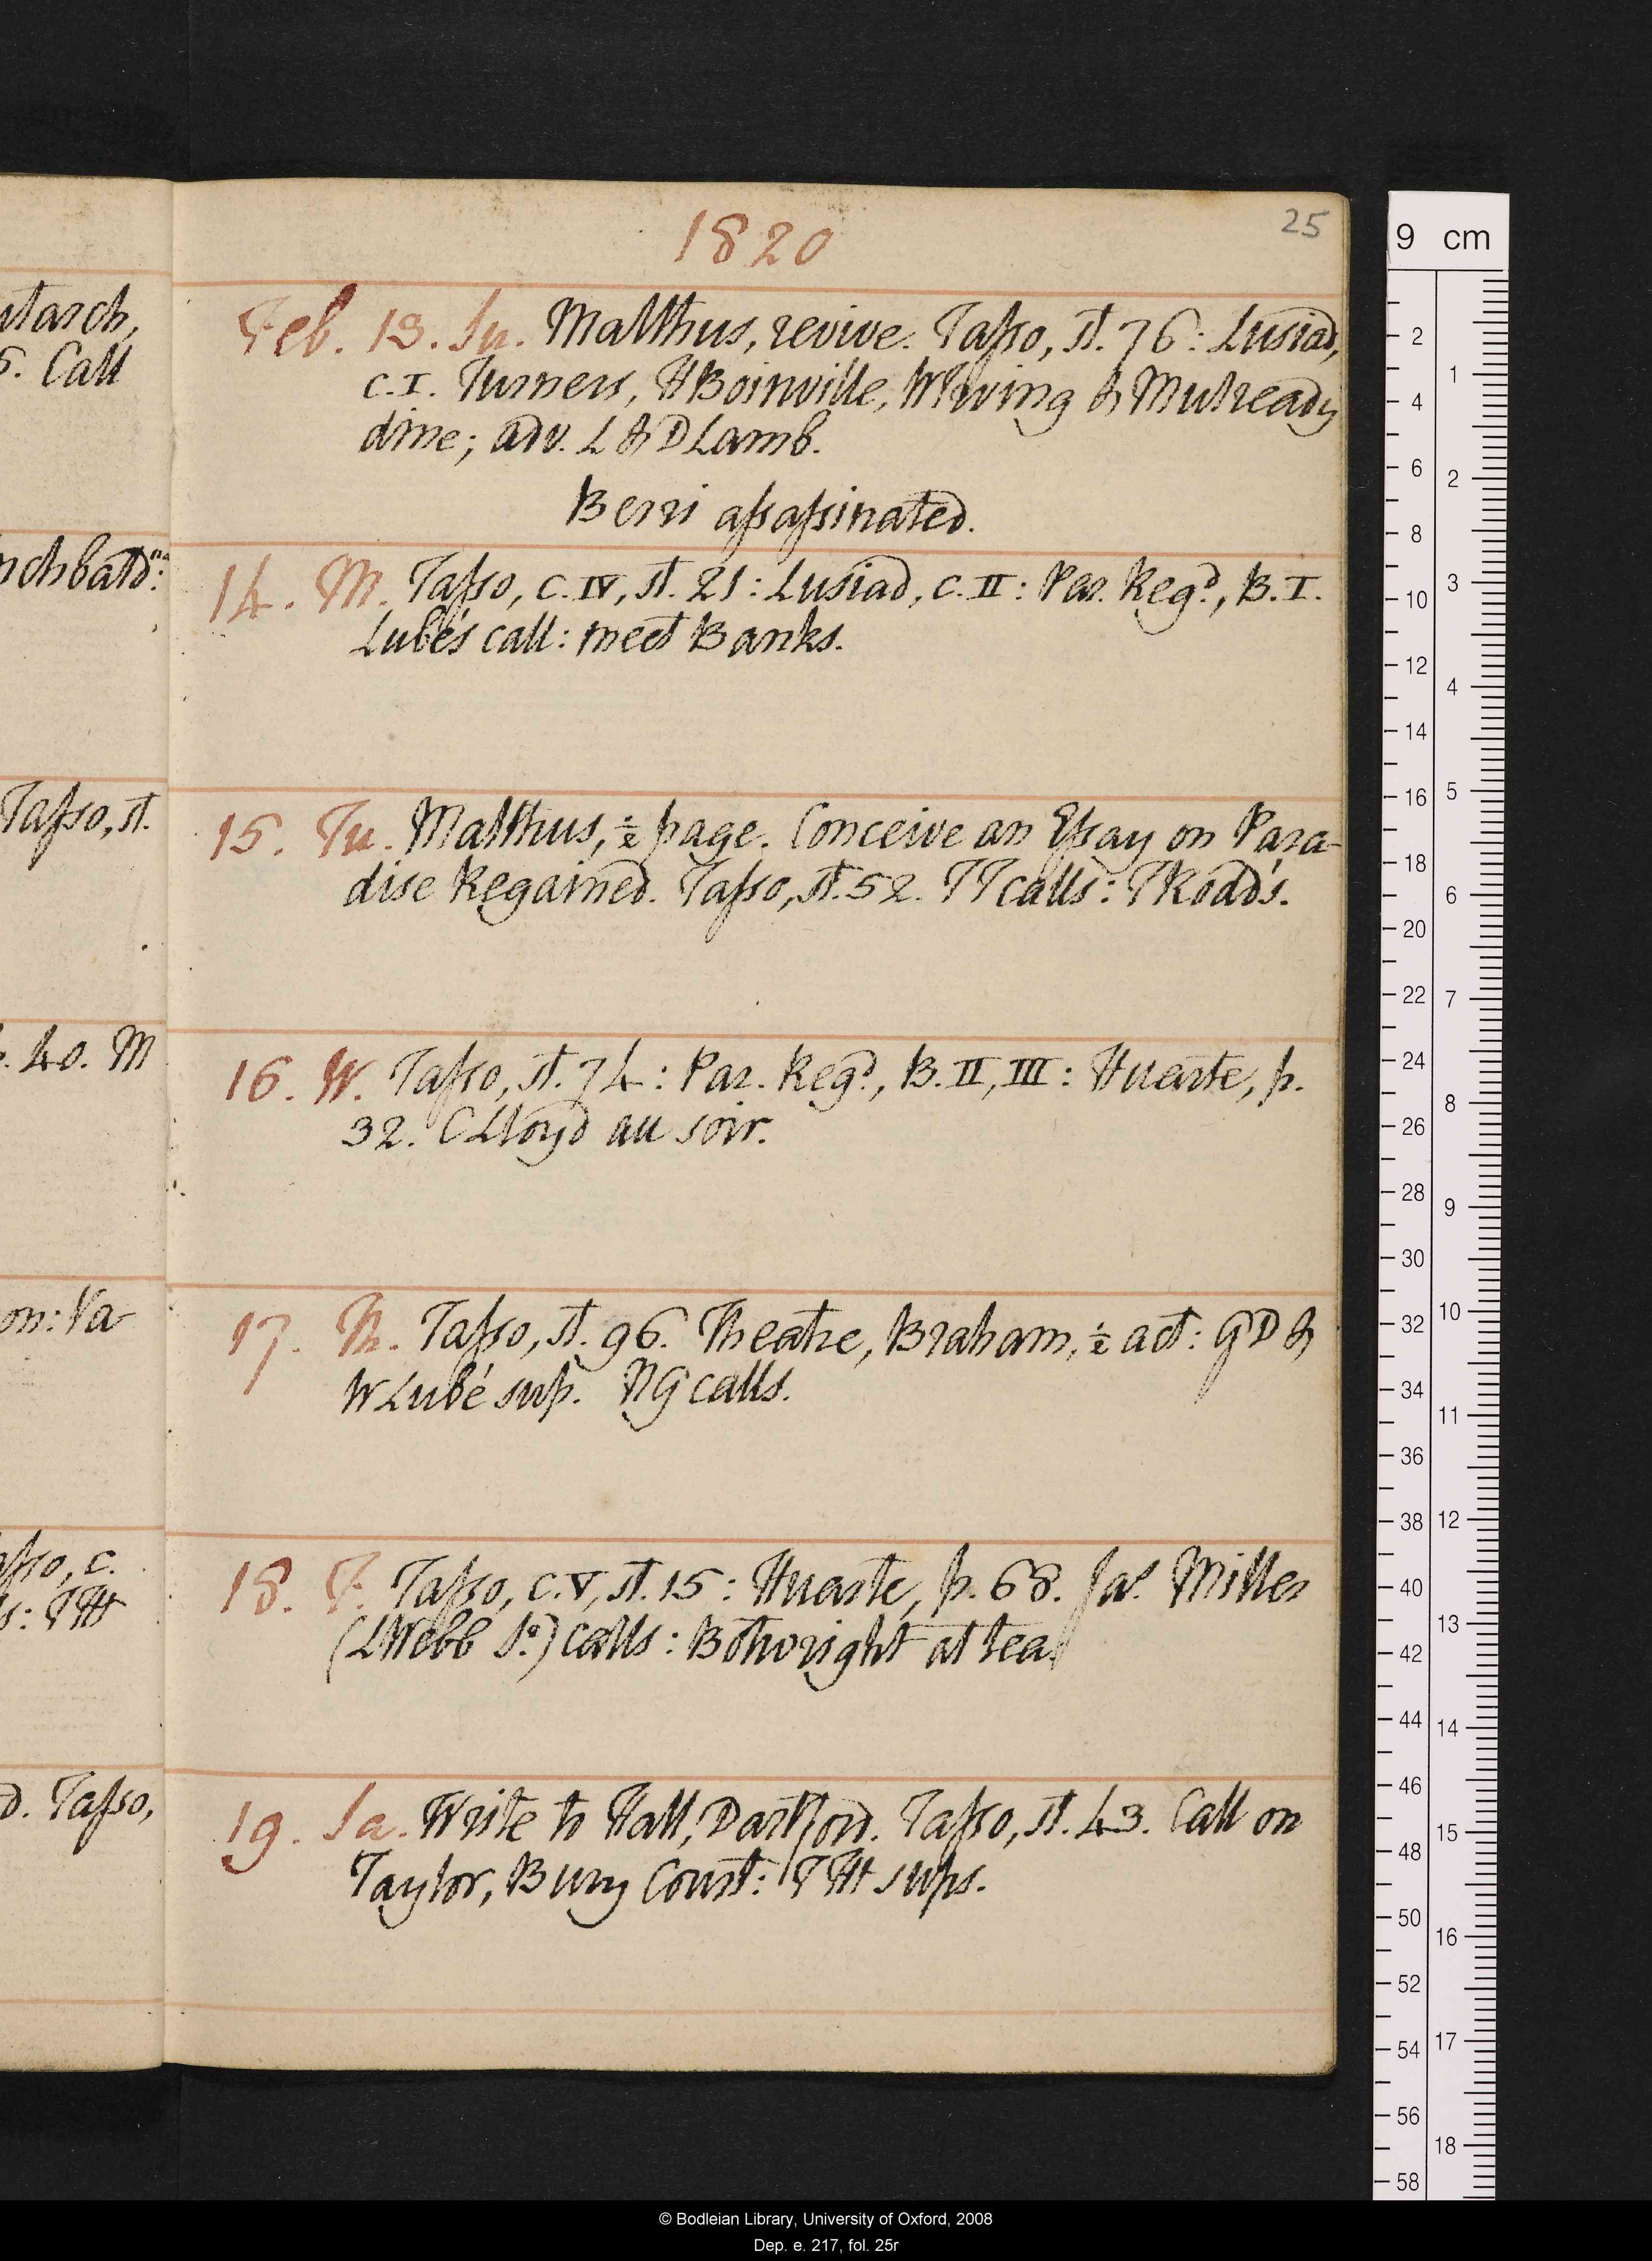 1820
25
Feb. 13. Su. Malthus, revive. Tasso, st. 76: Lusiad,
c. I. Turners, HBoinville, WIrving & Mulready
dine; adv. L & DLamb.
Berri assassinated.
14. M. Tasso, c. IV, st. 21: Lusiad, c. II: Par. Regd, B. I.
Lubés call: meet Banks.
15. Tu. Malthus, ½ page. Conceive an Essay on Para-
dise Regained. Tasso, st. 52. TT calls: TRodd's.
16. W. Tasso, st. 74: Par. Regd, B. II, III: Huarte, p.
32. CLloyd au soir.
17. Th. Tasso, st. 96. Theatre, Braham, ½ act: GD &
WLubé sup. NG calls.
18. F. Tasso, c. V, st. 15: Huarte, p. 68. Jas Miller
(LWebb Sr.) calls: Bothwright at tea.
19. Sa. Write to Hall, Dartford. Tasso, st. 43. Call on
Taylor, Bury Court: THt sups.
utarch,
5. Call
nchbald
Tasso, st.
. 40. M
on: Va-
asso, c.
s: THt
d. Tasso,
9 cm
2 4 6 8 10 12 14 16 18 20 22 24 26 28 30 32 34 36 38 40 42 44 46 48 50 52 54 56 58
1 2 3 4 5 6 7 8 9 10 11 12 13 14 15 16 17 18
© Bodleian Library, University of Oxford, 2008
Dep. e. 217, fol. 25r